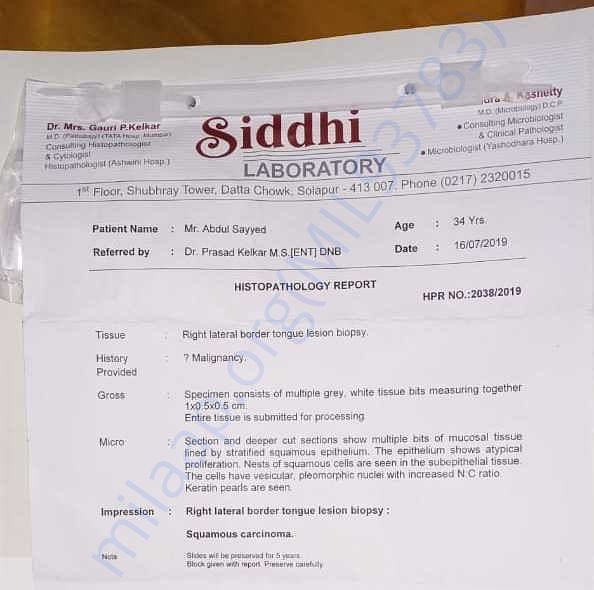 Dr. Mrs. Gauri P.Kelkar
M.D. (Pathology) (TATA Hosp. Mumbai)
Consulting Histopathologist
& Cytologist
Histopathologist (Ashwini Hosp.)
Siddhi
LABORATORY
M.D. (Microbiology) D.C.P.
● Consulting Microbiologist
& Clinical Pathologist
● Microbiologist (Yashodhara Hosp.)
1st Floor, Shubhray Tower, Datta Chowk, Solapur - 413 007, Phone (0217) 2320015
Patient Name : Mr. Abdul Sayyed Age : 34 Yrs.
Referred by : Dr. Prasad Kelkar M.S.[ENT] DNB Date : 16/07/2019
HISTOPATHOLOGY REPORT
HPR NO.:2038/2019
Tissue : Right lateral border tongue lesion biopsy.
History : ? Malignancy.
Provided
Gross : Specimen consists of multiple grey, white tissue bits measuring together
1x0.5x0.5 cm.
Entire tissue is submitted for processing
Micro : Section and deeper cut sections show multiple bits of mucosal tissue
lined by stratified squamous epithelium. The epithelium shows atypical
proliferation. Nests of squamous cells are seen in the subepithelial tissue.
The cells have vesicular, pleomorphic nuclei with increased N:C ratio.
Keratin pearls are seen.
Impression : Right lateral border tongue lesion biopsy :
Squamous carcinoma.
Note Slides will be preserved for 5 years.
Block given with report. Preserve carefully.